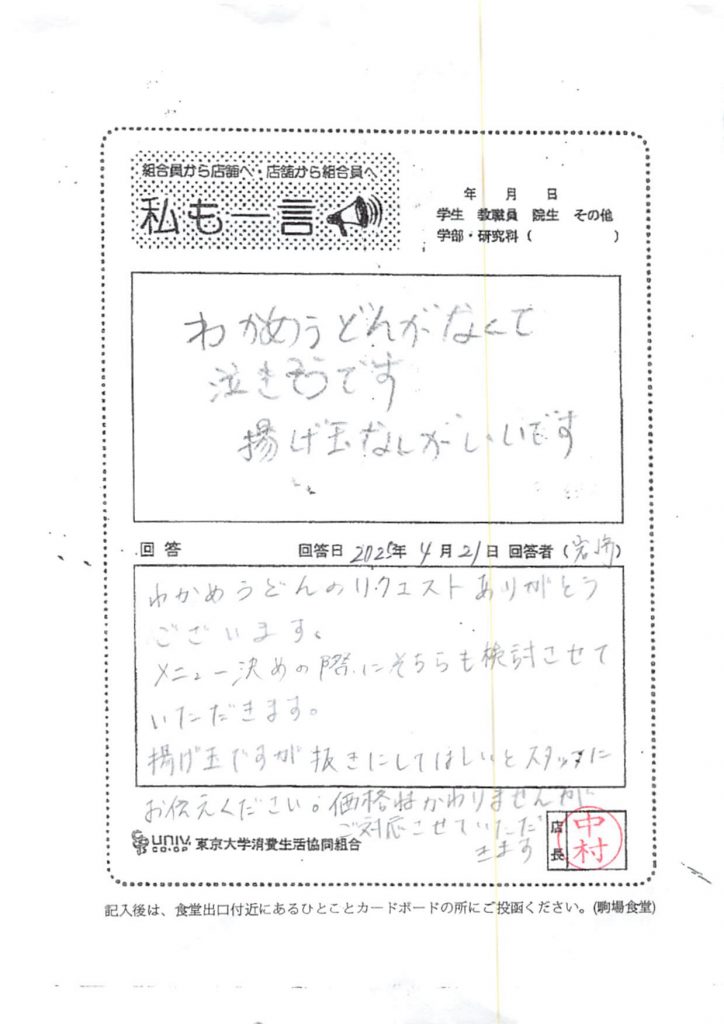 組合員から店舗へ・店舗から組合員へ
私も一言
年 月 日
学生 教職員 院生 その他
学部・研究科( )
わかめうどんがなくて
泣きそうです
揚げ玉なしがいいです
回答 回答日 2025年 4月21日 回答者(岩崎)
わかめうどんのリクエストありがとう
ございます。
メニュー決めの際にそちらも検討させて
いただきます。
揚げ玉ですが抜きにしてほしいとスタッフに
お伝えください。価格はかわりませんが
ご対応させていただ
きます
UNIV. CO-OP 東京大学消費生活協同組合
店長 中村
記入後は、食堂出口付近にあるひとことカードボードの所にご投函ください。(駒場食堂)